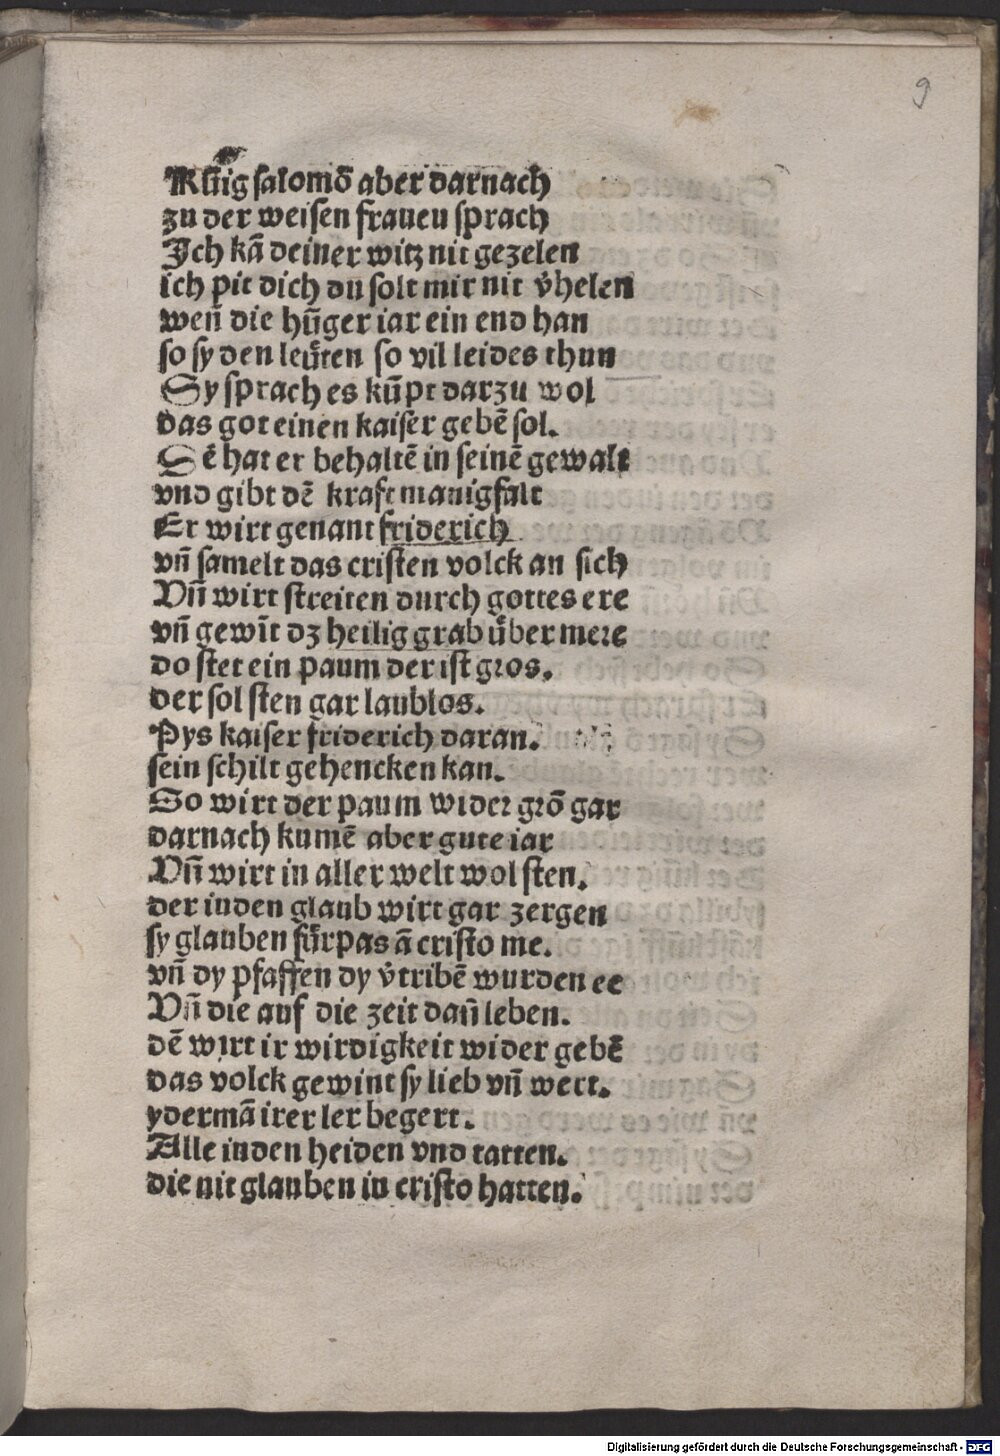 9
Kůnig salomō aber darnach
zu der weisen frauen sprach
Ich kā deiner witz nit gezelen
ich pit dich du solt mir nit v̓helen
wen̄ die hūger iar ein end han
so sy den leůten so vil leides thun
Sy sprach es kūpt darzu wol
das got einen kaiser gebē sol.
Dē hat er behaltē in seinē gewalt
vnd gibt dē kraft manigfalt
Er wirt genant friderich
vn̄ samelt das cristen volck an sich
Vn̄ wirt streiten durch gottes ere
vn̄ gewīt dz heilig grab ůber mere
do stet ein paum der ist gros.
der sol sten gar laublos.
Pys kaiser friderich daran.
sein schilt gehencken kan.
So wirt der paum wider grō gar
darnach kumē aber gute iar
Vn̄ wirt in aller welt wol sten.
der iuden glaub wirt gar zergen
sy glauben fůrpas ā cristo me.
vn̄ dy pfaffen dy v̓tribē wurden ee
Vn̄ die auf die zeit dan̄ leben.
dē wirt ir wirdigkeit wider gebē
das volck gewint sy lieb vn̄ wert.
ydermā irer ler begert.
Alle iuden heiden vnd tatten.
die nit glauben in cristo hatten.
Digitalisierung gefördert durch die Deutsche Forschungsgemeinschaft - DFG